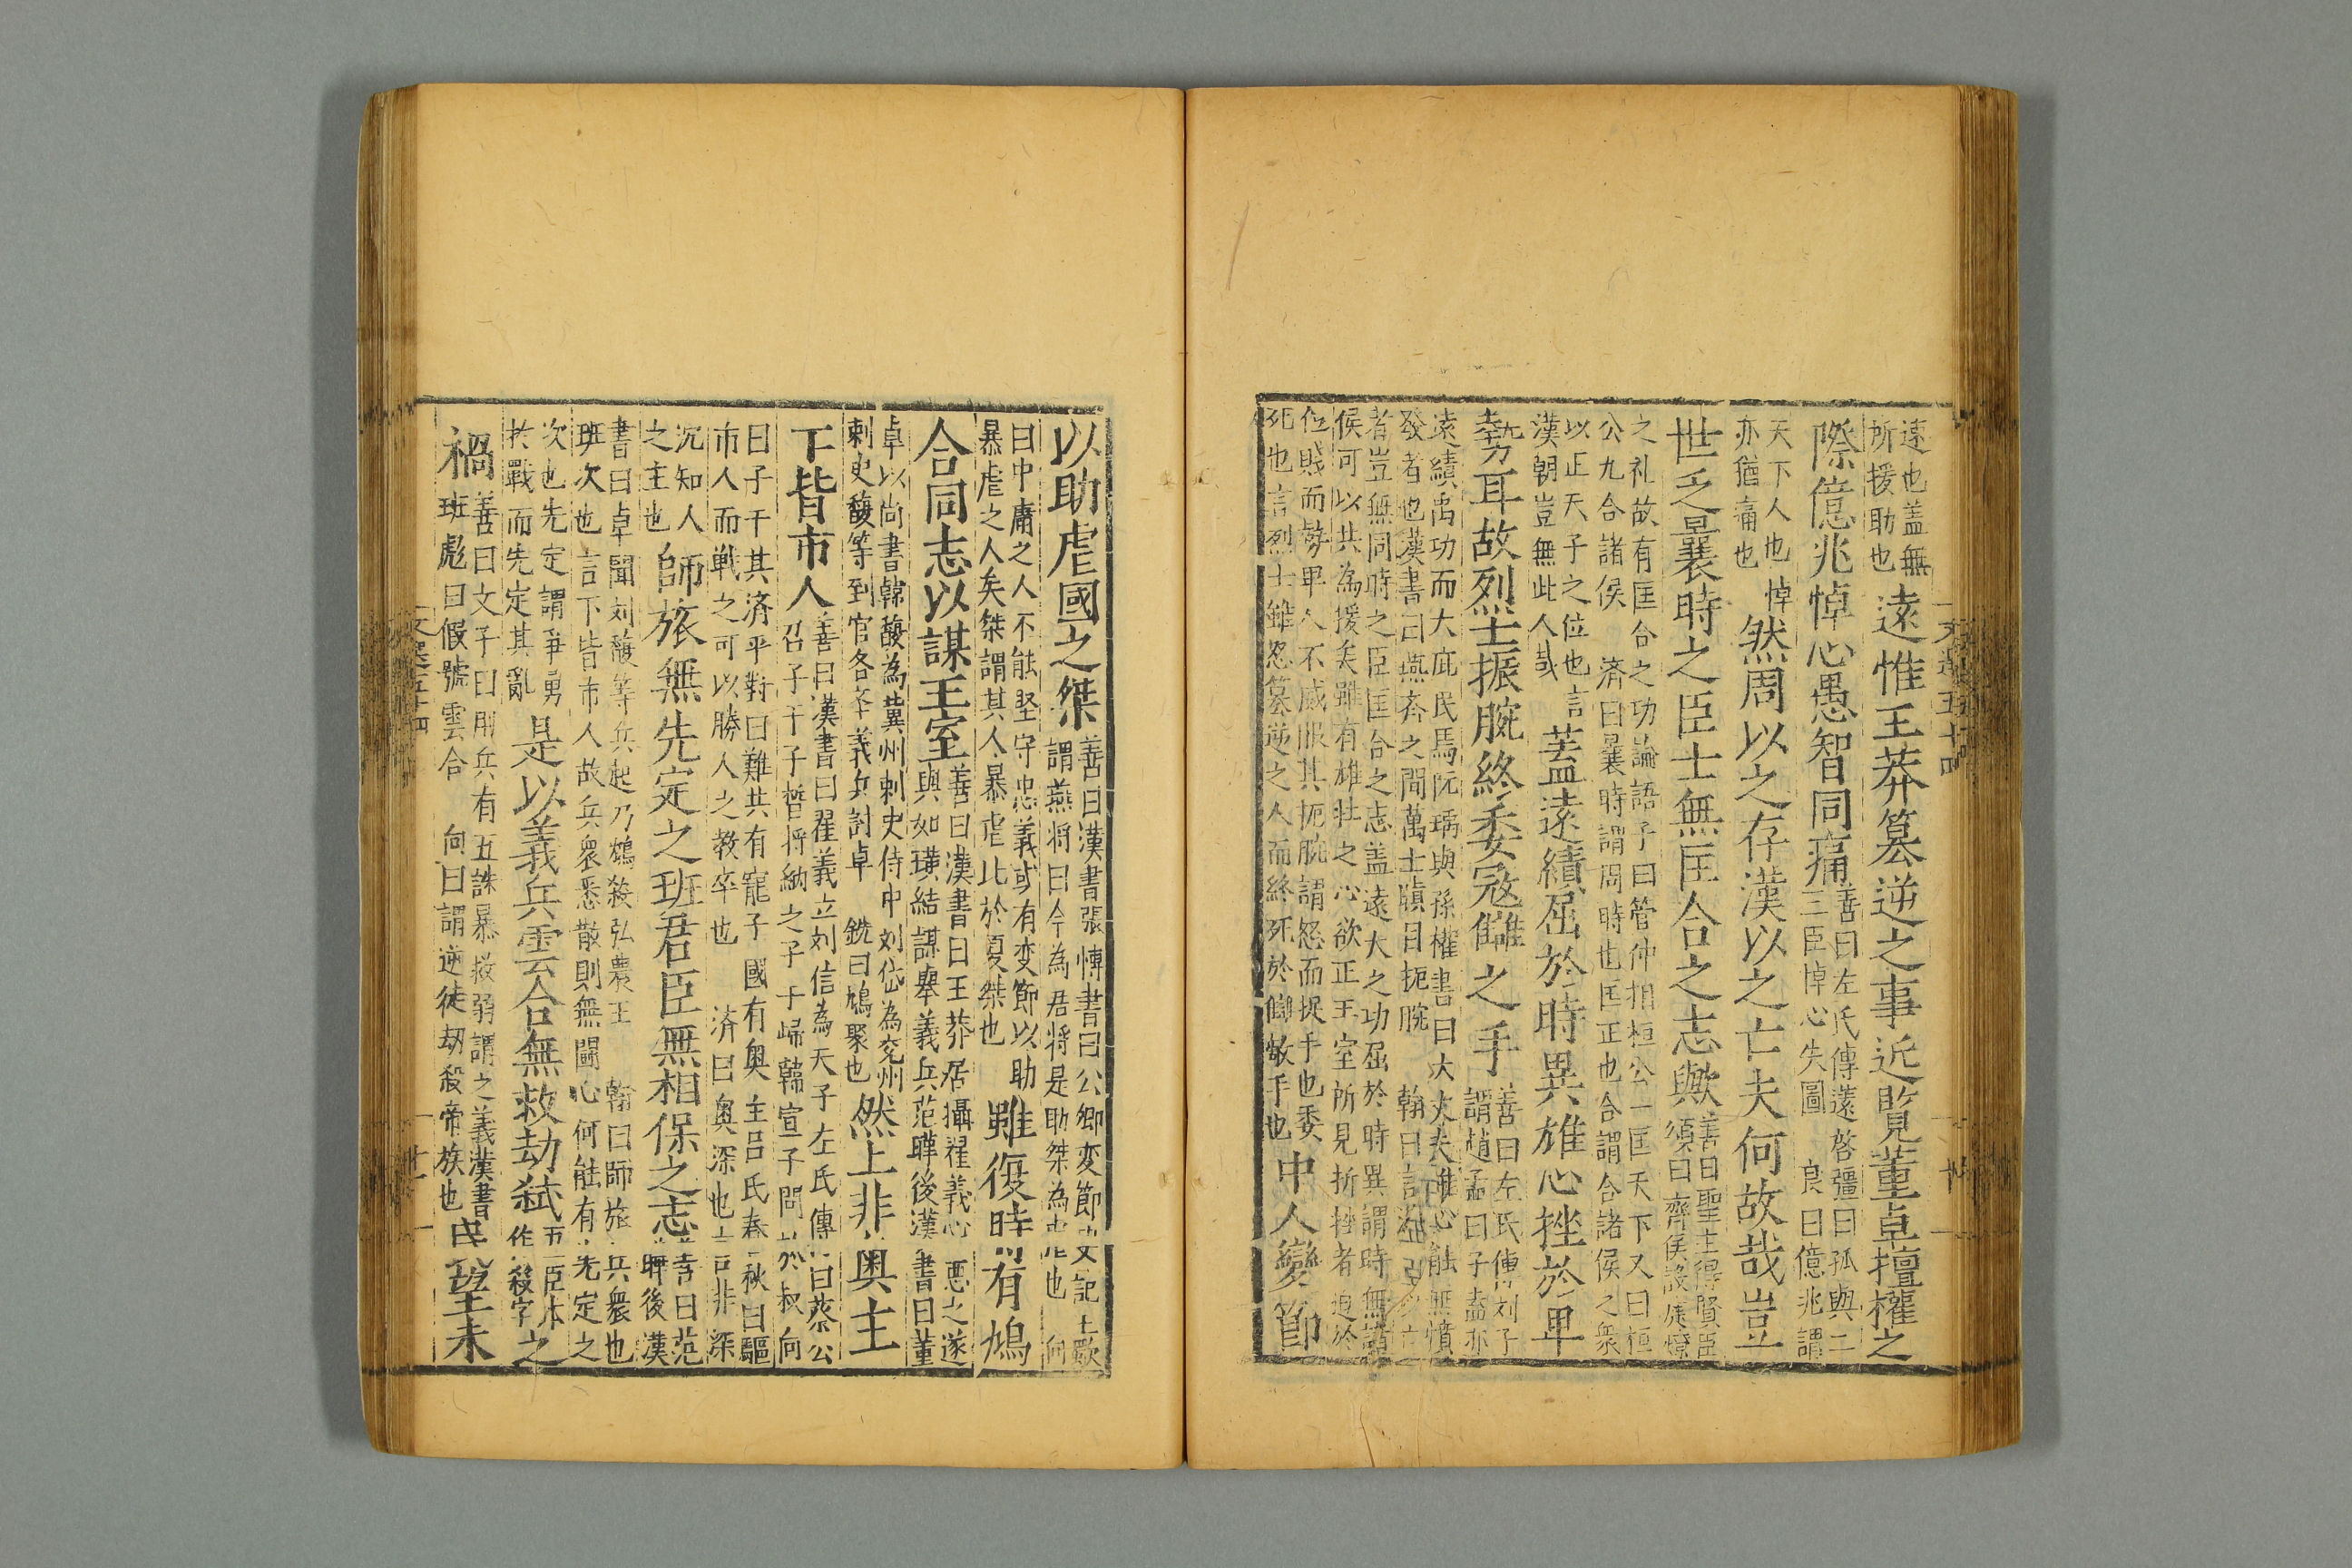 遠也盖無
所援助也
遠惟王莽篡逆之事近覧董卓擅權之
際億兆悼心愚智同痛
善曰左氏傳薳啓彊曰孤與二
三臣悼心失圖 良曰億兆謂
天下人也 悼
亦猶痛也
然周以之存漢以之亡夫何故哉豈
世乏曩時之臣士無匡合之志歟
善曰聖主得賢臣
頌曰齊侯設庭燎
之礼故有匡合之功論語子曰管仲相桓公一匡天下又曰桓
公九合諸侯 済曰曩時謂周時也匡正也合謂合諸侯之衆
以正天子之位也言
漢朝豈無此人哉
蓋遠績屈於時異雄心挫於卑
勢耳故烈士振腕終委寇讎之手
善曰左氏傳刘子
謂趙孟曰子盍亦
遠績禹功而大庇民焉阮瑀與孫權書曰大丈夫雄心能無憤
發者也漢書曰燕斉之間萬士瞋目扼腕 翰曰言
者豈無同時之臣匡合之志盖遠大之功屈於時異謂時無諸
侯可以共為援矣雖有雄壮之心欲正王室所見折挫者迫於
位賎而勢卑人不威服其扼腕謂怒而捉手也委
死也言烈士雖忿篡逆之人而終死於仰敵手也
中人變節
文選五十四
以助虐國之桀
善曰漢書張博書曰公卿変節 史記王歜
謂燕将曰今為君将是助桀為虐也 向
曰中庸之人不能堅守忠義或有变節以助
暴虐之人矣桀謂其人暴虐比於夏桀也
雖復時有鳩
合同志以謀王室
善曰漢書曰王莽居攝翟義心悪之遂
與如璜結謀舉義兵范曄後漢書曰董
卓以尚書韓馥為冀州刺史侍中刘岱為兖州
刺史馥等到官各举義兵討卓 銑曰鳩聚也
然上非奥主
下皆市人
善曰漢書曰翟義立刘信為天子左氏傳曰蔡公
召子干子皙将納之子干歸韓宣子問於叔向
曰子干其済乎對曰難共有寵子國有奥主吕氏春秋曰驅
市人而戦之可以勝人之教卒也 済曰奥深也言非深
沉知人
之主也
師旅無先定之班君臣無相保之志
善曰范
曄後漢
書曰卓聞刘馥等兵起乃鴆殺弘農王 翰曰師旅兵衆也
班次也言下皆市人故兵衆悉散則無闘心何能有先定之
次也先定謂爭勇
扵戰而先定其亂
是以義兵雲合無救劫弑
五臣本
作殺字
之
禍
善曰文子曰用兵有五誅暴救弱謂之義漢書
班彪曰假號雲合 向曰謂逆徒刼殺帝族也
民望未